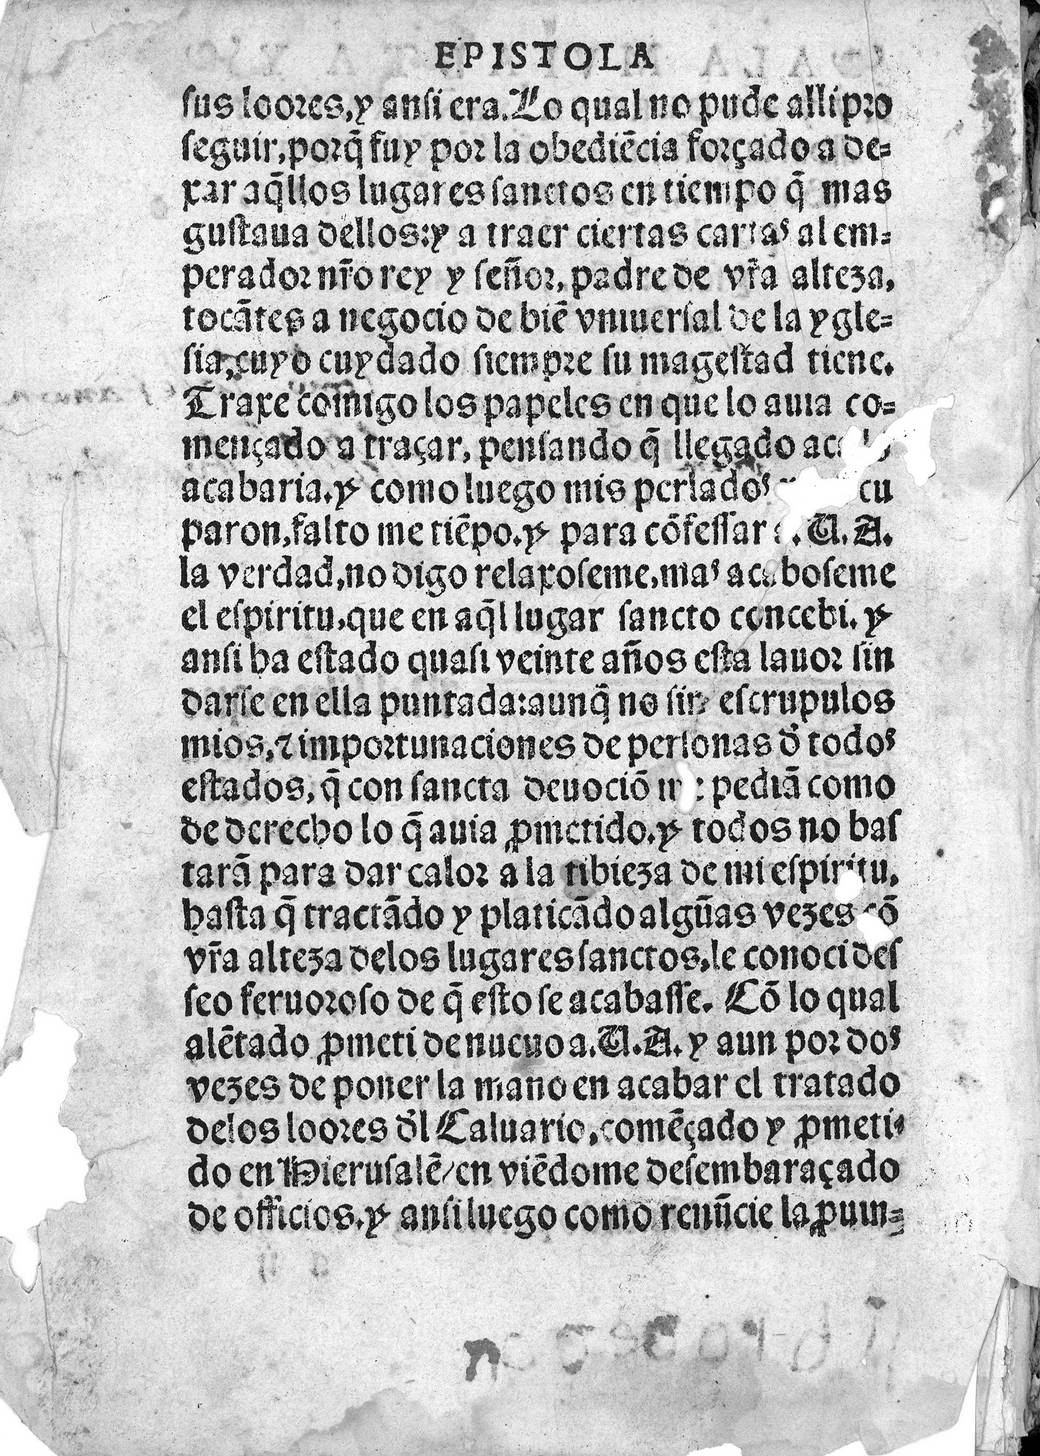 EPISTOLA
sus loores, y ansi era. Lo qual no pude alli pro
seguir, porq̃ fuy por la obediẽcia forçado a de=
xar aq̃llos lugares sanctos en tiempo q̃ mas
gustaua dellos: y a traer ciertas cartas al em=
perador nr̃o rey y señor, padre de vr̃a alteza,
tocãtes a negocio de biẽ vniuersal de la ygle=
sia, cuyo cuydado siempre su magestad tiene.
Traxe comigo los papeles en que lo auia co=
mençado a traçar, pensando q̃ llegado
acabaria. y como luego mis perlados cu
paron, falto me tiẽpo. y para cõfessar a. V. A.
la verdad, no digo relaxoseme, mas acaboseme
el espiritu, que en aq̃l lugar sancto concebi. y
ansi ha estado quasi veinte años esta lauor sin
darse en ella puntada: aunq̃ no sin escrupulos
mios, ⁊ importunaciones de personas d̃ todos
estados, q̃ con sancta deuociõ me pediã como
de derecho lo q̃ auia ꝓmetido. y todos no bas
tarã para dar calor a la tibieza de mi espiritu,
hasta q̃ tractãdo y platicãdo algũas vezes cõ
vr̃a alteza delos lugares sanctos, le conoci des
seo feruoroso de q̃ esto se acabasse. Cõ lo qual
alẽtado ꝓmeti de nueuo a. V. A. y aun por dos
vezes de poner la mano en acabar el tratado
delos loores d̃l Caluario, comẽçado y ꝓmeti=
do en Hierusalẽ/ en viẽdome desembaraçado
de officios. y ansi luego como renũcie la ꝓuin=